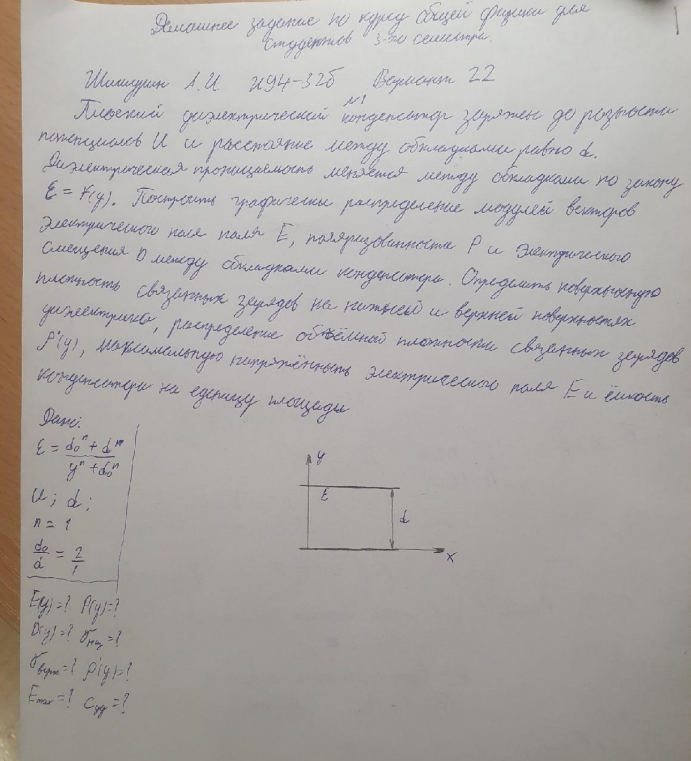 Домашнее задание по курсу общей физики для
студентов 3-го семестра.
А.И. Вариант 22
№1
Плоский диэлектрический конденсатор заряжен до разности
потенциалов U и расстояние между обкладками равно d.
Диэлектрическая проницаемость меняется между обкладками по закону
ε = f(y). Построить графически распределение модулей векторов
электрического поля поля E, поляризованности P и электрического
смещения D между обкладками конденсатора. Определить поверхностную
плотность связанных зарядов на нижней и верхней поверхностях
диэлектрика, распределение объёмной плотности связанных зарядов
ρ'(y), максимальную напряжённость электрического поля E и ёмкость
конденсатора на еденицу площади
Дано:
ε = (d₀ⁿ + dⁿ)/(yⁿ + d₀ⁿ)
U; d;
n = 1
d₀/d = 2/1
E(y)=? P(y)=?
D(y)=?
ρ'(y)=?
Emax=? Cуд=?
y
ε
d
x